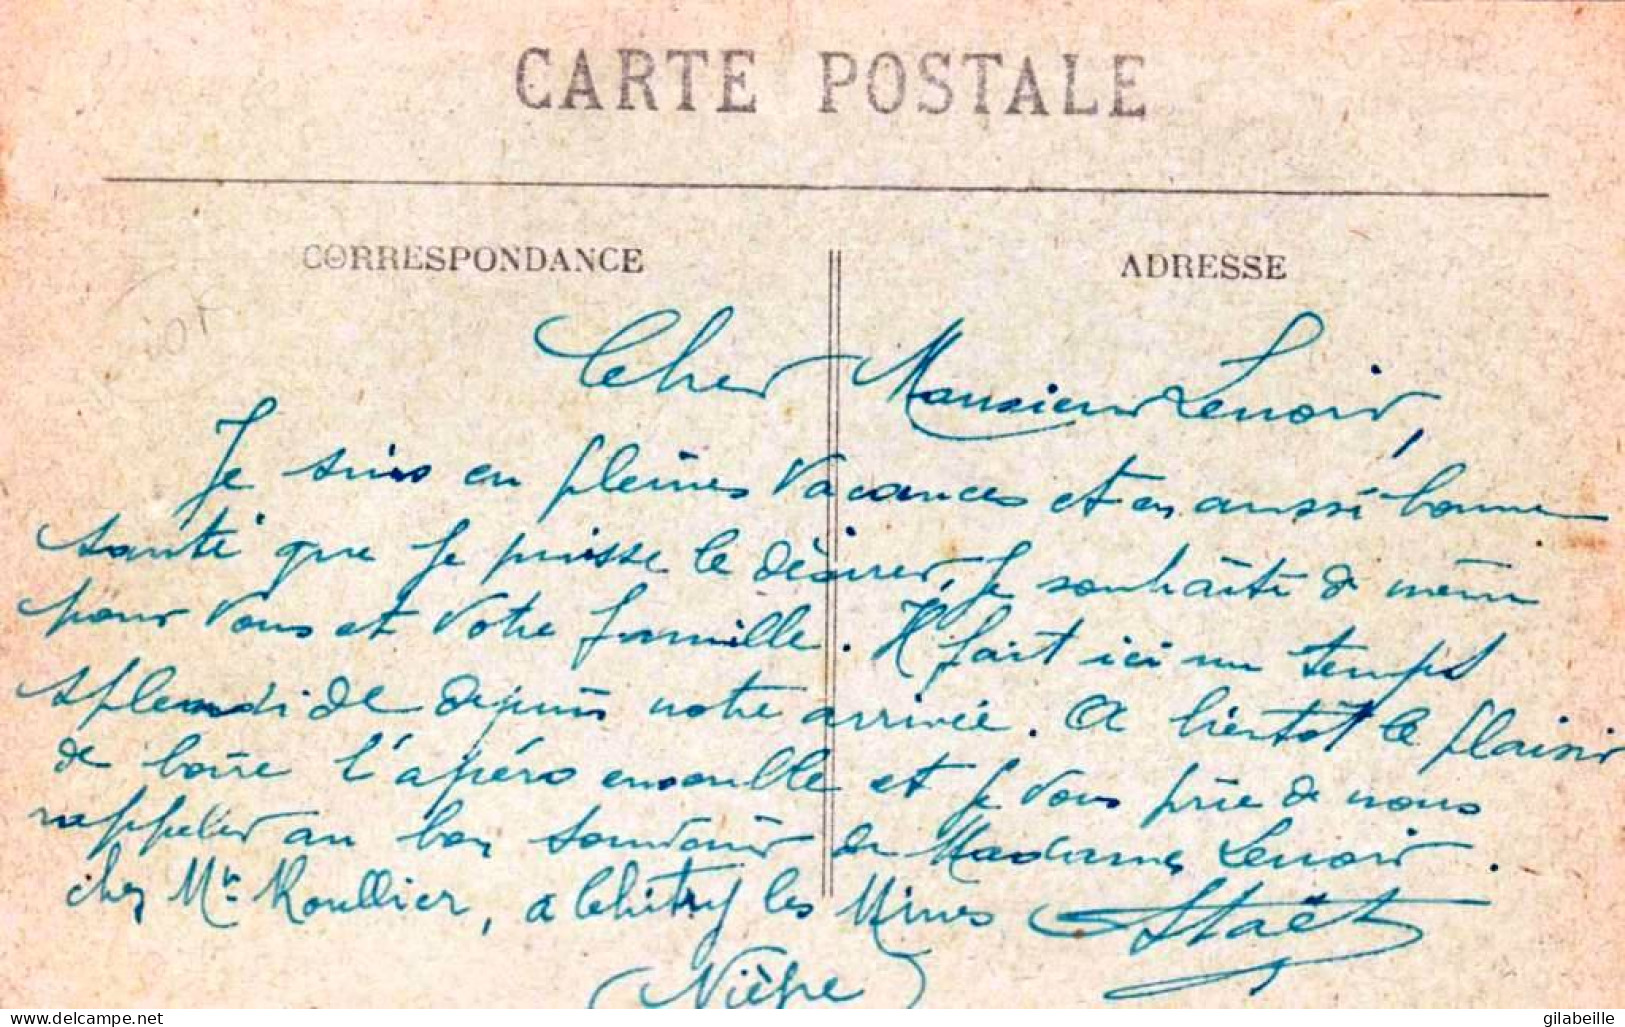 CARTE POSTALE
CORRESPONDANCE
ADRESSE
Cher Monsieur Lenoir,
Je suis en pleines vacances et en aussi bonne
santé que je puisse le désirer, je souhaite de même
pour vous et votre famille. Il fait ici un temps
splendide depuis notre arrivée. A bientôt le plaisir
de boire l'apéro ensemble et je vous prie de nous
rappeler au bon souvenir de Madame Lenoir.
chez Mr. Roullier, a Chitry les Mines
(Nièvre)
www.delcampe.net
gilabeille